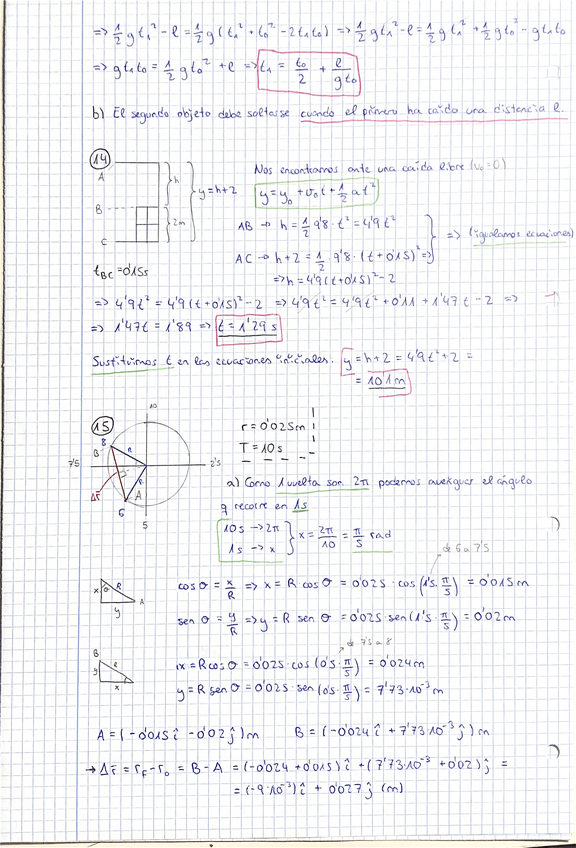 => 1/2 g t₁² - l = 1/2 g (t₁² + t₀² - 2t₁t₀) => 1/2 g t₁² - l = 1/2 g t₁² + 1/2 g t₀² - g t₁t₀
=> g t₁t₀ = 1/2 g t₀² + l => t₁ = t₀/2 + l/(g t₀)
b) El segundo objeto debe soltarse cuando el primero ha caído una distancia l.
14
Nos encontramos ante una caída libre (v₀ = 0)
A
h
y = h+2
y = y₀ + v₀t + 1/2 at²
B
2m
AB → h = 1/2 9'8 · t² = 4'9t²
=> (igualamos ecuaciones)
C
AC → h+2 = 1/2 9'8 · (t+0'15)² =>
t_BC = 0'15s
=> h = 4'9(t+0'15)² - 2
=> 4'9t² = 4'9(t+0'15)² - 2 => 4'9t² = 4'9t² + 0'11 + 1'47t - 2 =>
=> 1'47t = 1'89 => t = 1'29 s
Sustituimos t en las ecuaciones iniciales. y = h+2 = 4'9t² + 2 =
= 10'1m
15
10
r = 0'025m
T = 10s
8
B
R
7'5
2'5
R
Δr̄
A
6
5
a) Como 1 vuelta son 2π podemos averiguar el ángulo
q recorre en 1s
10s → 2π
1s → x
x = 2π/10 = π/5 rad
de 6 a 7'5
x
θ
R
A
y
cos θ = x/R => x = R cos θ = 0'025 · cos (1'5 · π/5) = 0'015m
sen θ = y/R => y = R sen θ = 0'025 · sen (1'5 · π/5) = 0'02m
de 7'5 a 8
B
y
R
x
x = R cos θ = 0'025 · cos (0'5 · π/5) = 0'024m
y = R sen θ = 0'025 · sen (0'5 · π/5) = 7'73·10⁻³ m
A = (-0'015 î - 0'02 ĵ) m B = (-0'024 î + 7'73·10⁻³ ĵ) m
→ Δr̄ = r_F - r₀ = B - A = (-0'024 + 0'015) î + (7'73·10⁻³ + 0'02) ĵ =
= (-9·10⁻³) î + 0'027 ĵ (m)